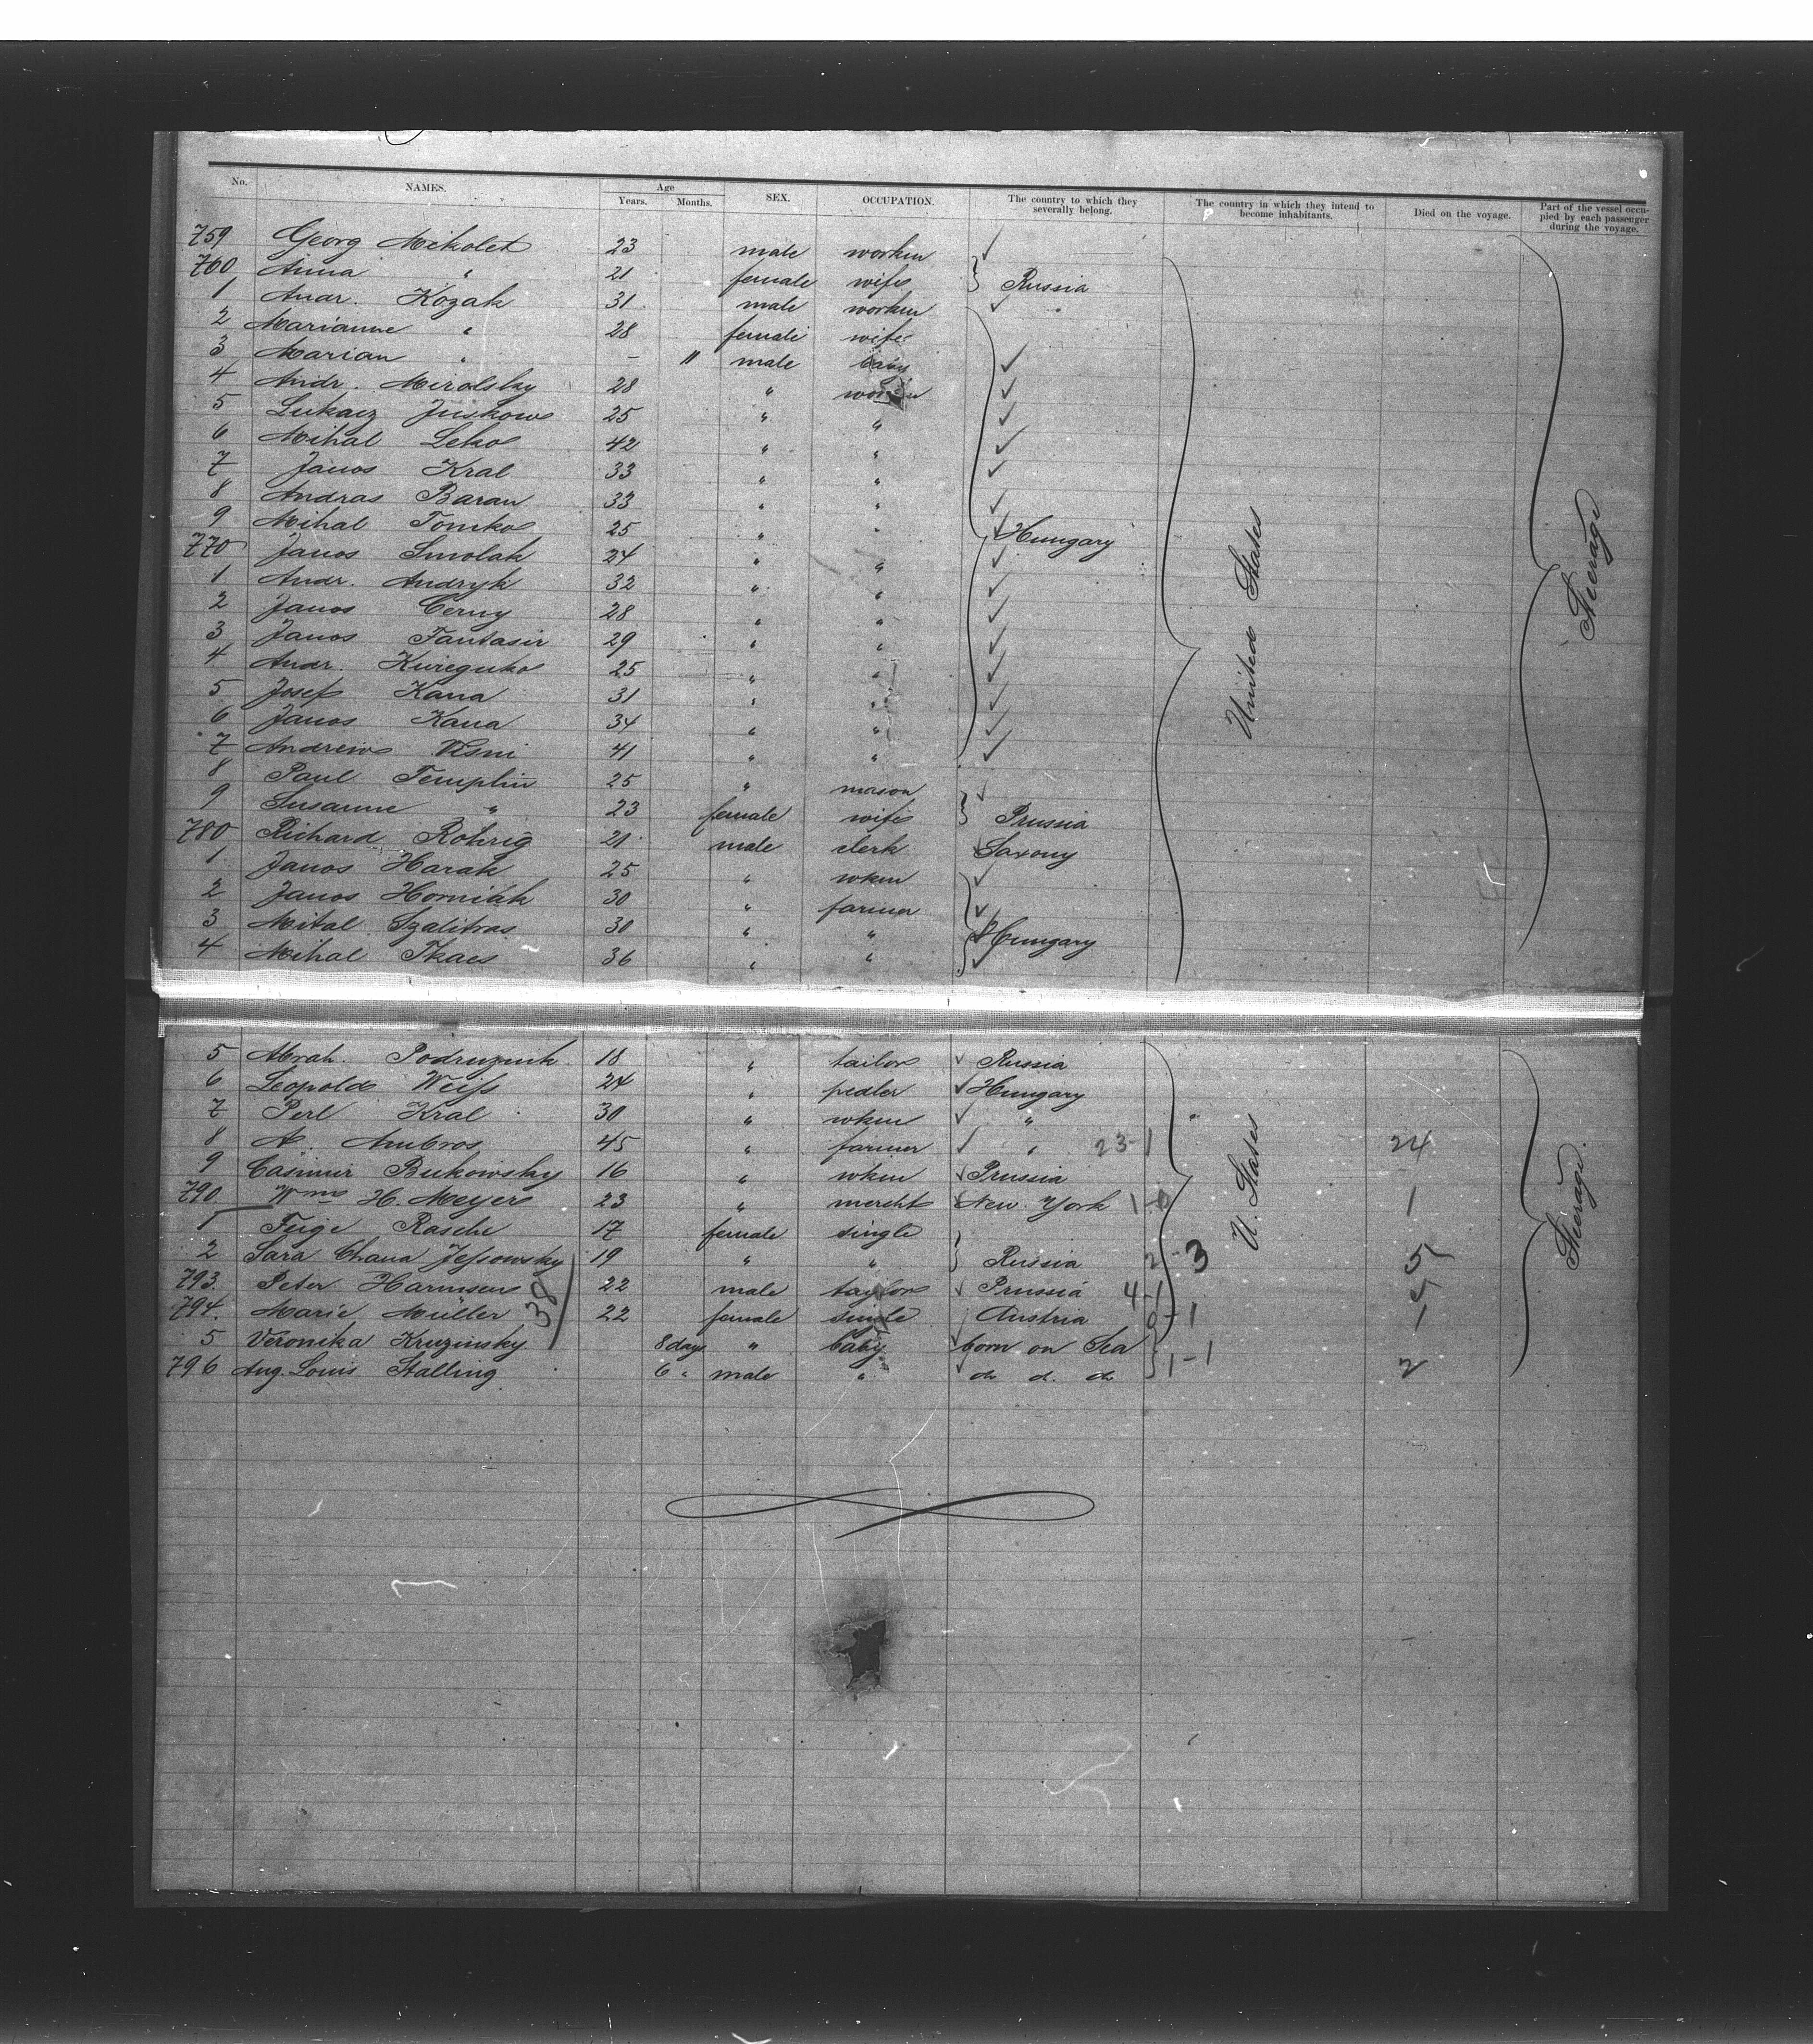 No. NAMES. Age Years. Months. SEX. OCCUPATION. The country to which they severally belong. The country in which they intend to become inhabitants. Died on the voyage. Part of the vessel occupied by each passenger during the voyage.
759 Georg Mikolet 23 male workm ✓
760 Anna " 21 female wife } Russia
1 Andr. Kozak 31 male workm ✓
2 Marianne " 28 female wife
3 Marian " – 11 male baby ✓
4 Andr. Mirolsky 28 " workm ✓
5 Lukacz Juskow 25 " " ✓
6 Mihal Leko 42 " " ✓
7 Janos Kral 33 " " ✓
8 Andras Baran 33 " " ✓
9 Mihal Tomko 25 " " ✓ Hungary
770 Janos Smolak 24 " " ✓
1 Andr. Andryk 32 " " ✓
2 Janos Cerny 28 " " ✓
3 Janos Fantasir 29 " " ✓
4 Andr. 25 " " ✓
5 Josef Kana 31 " " ✓
6 Janos Kana 34 " " ✓
7 Andrew Visni 41 " " ✓
8 Paul Templin 25 " mason ✓
9 Susanne " 23 female wife } Prussia
780 Richard Rohrig 21 male clerk ✓ Saxony
1 Janos Harak 25 " wkm ✓
2 Janos Horniak 30 " farmer ✓
3 Mital Szalitras 30 " " ✓ Hungary
4 Mihal Tkacs 36 " " ✓
United States
Steerage
5 Abrah. Podruznik 18 " tailor ✓ Russia
6 Leopold Weiss 24 " pedler ✓ Hungary
7 Perl Kral 30 " wkm ✓ "
8 A. Ambros 45 " farmer ✓ " 23-1 24
9 Casimir Bukowsky 16 " wkm ✓ Prussia
790 Wm H. Meyer 23 " mercht ✓ New York 1-0 1
1 Feige Rasche 17 female single
2 Sara Chana Jessowsky 19 " " } Russia 2-3 5
793. Peter Harmsen 22 male taylor ✓ Prussia 4-1 5
794. Marie Müller 38 22 female single Austria 0-1 1
5 Veronika Kruzinsky 8 days " baby ✓ born on Sea
796 Aug. Louis Stalling 6 " male " ✓ do d. do } 1-1 2
U. States
Steerage.